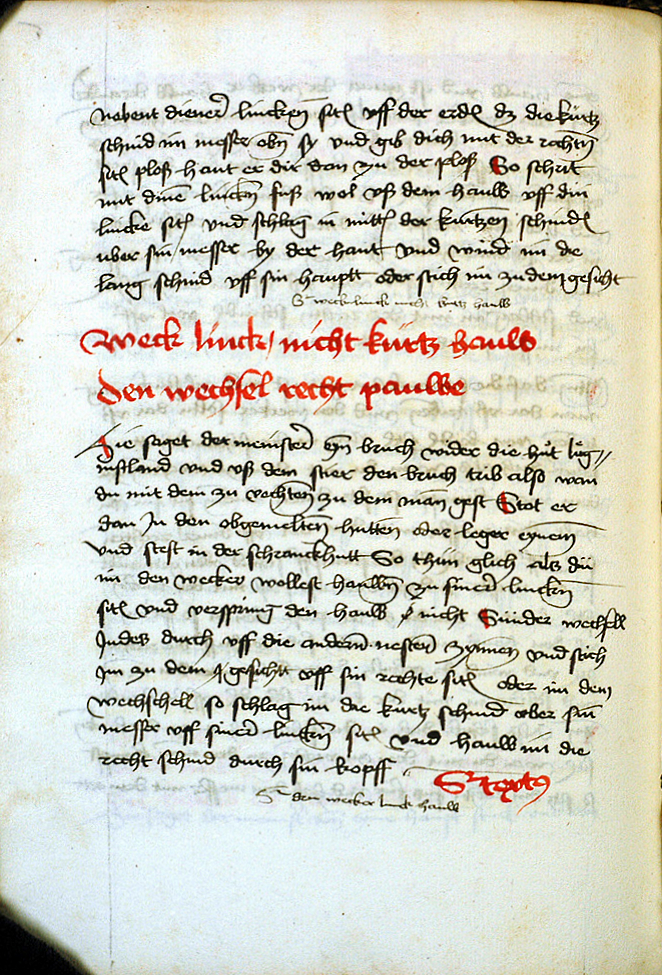 nebent diener lincken sit vff der erd dz die kürtz
schnid im messer oben sy vnd gib dich mit der rechten
sit ploß haut er dir dan zu der ploß So schrit
mit dinē lincken fuß wol vß dem hauw vff din
lincke sit vnd schlag in mitt der kurtzen schnid
vber sin messer by der hant vnd wind im die
lang schnid vff sin haupt oder stich im zu dem gesicht
S weck linck nicht kurtz hauw
Weck linck / nicht kürtz hauw
den wechsel recht pauwe
Hie saget der meinster eyn bruch wider die hůt lůg
inßland vnd vß dem stier den bruch trib also wan
du mit dem zu vechten zu dem man gest Stot er
dan In den obgemelten hutten oder leger eynem
vnd stest in der schranckhutt So thun glich als du
im den wecker wollest hauwen zu siner lincken
sit vnd verspring den hauw nicht Sunder wechsell
Indes durch vff die andern nesten zynnen vnd stich
Im zu dem gesicht vff sin rechte sit oder im dem
wechschell so schlag im die kurtz schnid ober sin
messer vff siner lincken sit vnd hauw im die
recht schnid durch sin kopff S Textus
S den wecker linck hauw